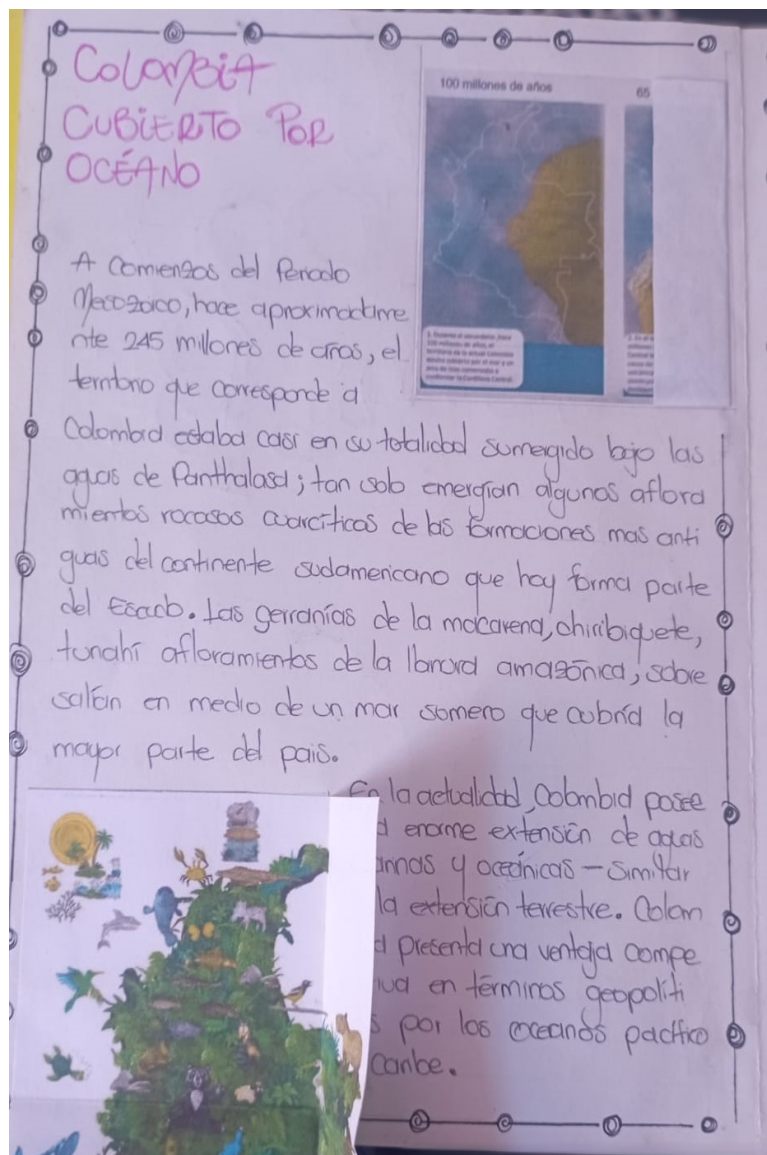 COLOMBIA
CUBIERTO POR
OCÉANO
100 millones de años
65
A comienzos del Periodo
Mesozoico, hace aproximadame
nte 245 millones de años, el
territorio que corresponde a
Colombia estaba casi en su totalidad sumegido bajo las
aguas de Panthalasa; tan solo emergían algunos aflora
mientos rocosos cuarcíticos de las formaciones mas anti
guas del continente sudamericano que hoy forma parte
del Escudo. Las serranías de la macarena, chiribiquete,
tunahí afloramientos de la llanura amazónica, sobre
salían en medio de un mar somero que cubría la
mayor parte del pais.
En la actualidad, Colombia posee
enorme extensión de aguas
y oceánicas - Similar
la extensión terrestre. Colom
presenta una ventaja compe
en términos geopolíti
s por los oceanos pacífico
caribe.